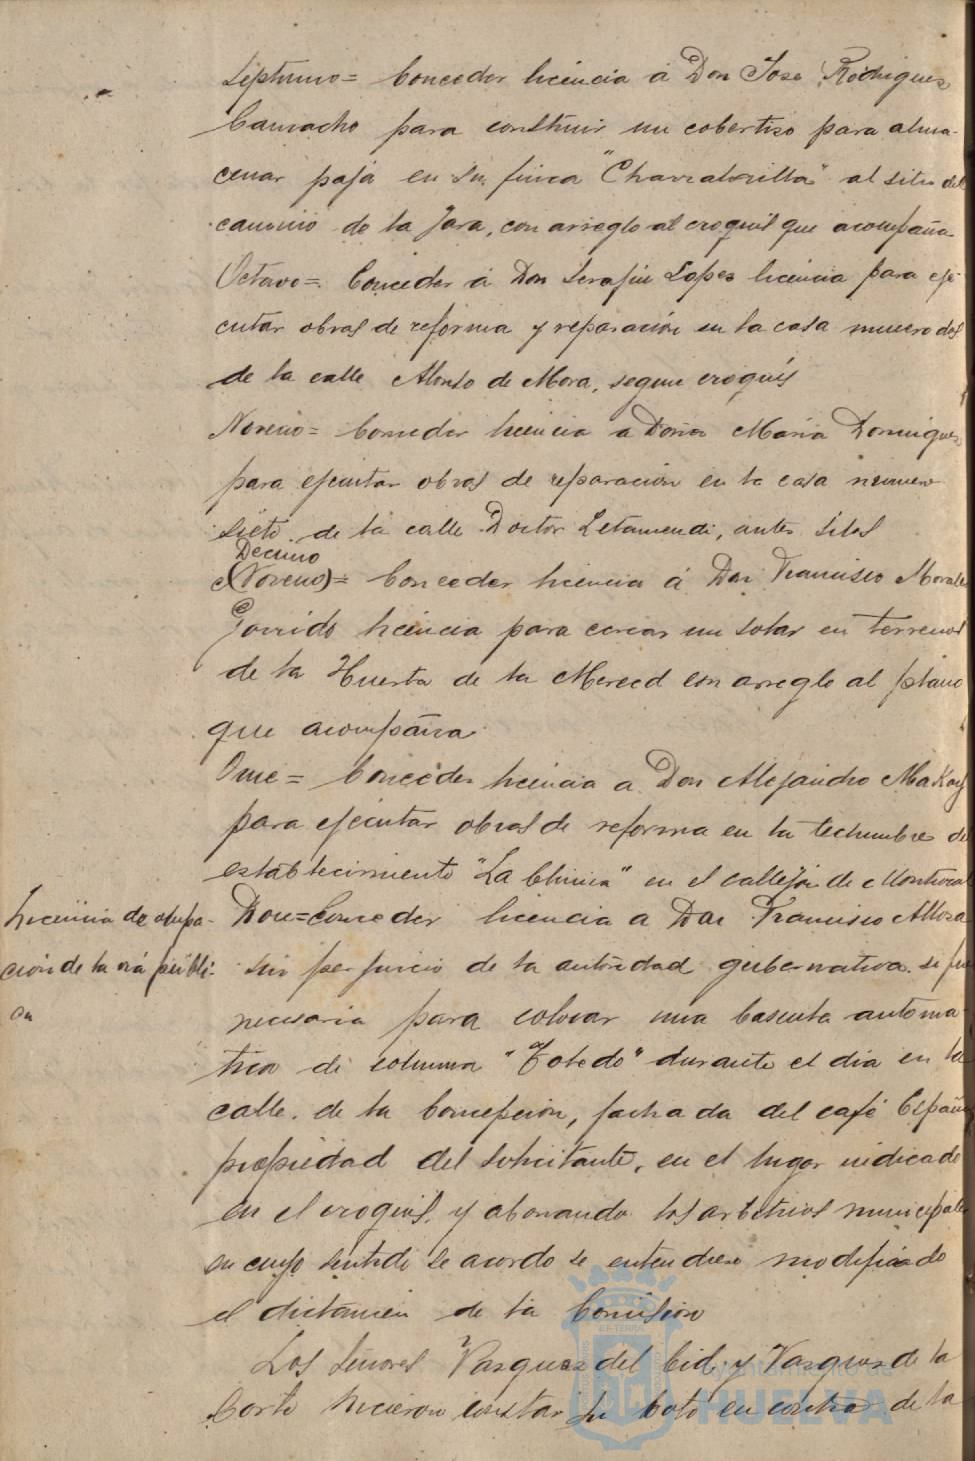 Septimo = Conceder licencia á Don Jose Rodriguez
Camacho para construir un cobertizo para alma-
cenar paja en su finca "Charrabrilla" al sitio del
camino de la Jara, con arreglo al croquis que acompaña
Octavo = Conceder á Don Serafin Lopez licencia para eje-
cutar obras de reforma y reparación en la casa numero dos
de la calle Alonso de Mora, segun croquis
Noveno = Conceder licencia a Doña Maria Dominguez
para ejecutar obras de reparación en la casa numero
siete de la calle Doctor Letamendi, antes Silos
Decimo
(Noveno) = Conceder licencia á Don Francisco Morales
Garrido licencia para cercar un solar en terrenos
de la Huerta de la Merced con arreglo al plano
que acompaña
Once = Conceder licencia a Don Alejandro MaKay
para ejecutar obras de reforma en la techumbre del
establecimiento "La China" en el callejón de Montrocal
Licencia de ocupa-
ción de la via públi-
ca
Doce = Conceder licencia a Don Francisco Mora
sin perjuicio de la autoridad gubernativa si fue
necesaria para colocar una bascula automa
tica de columna "Toledo" durante el dia en la
calle de la Concepcion, fachada del café España
propiedad del solicitante, en el lugar indicado
en el croquis y abonando los arbitrios municipales
en cuyo sentido se acordo se entendiera modificado
el dictamen de la Comision
Los Señores Vazquez del Cid y Vazquez de la
Corte hicieron constar su voto en contra de la
Ayuntamiento de
HUELVA